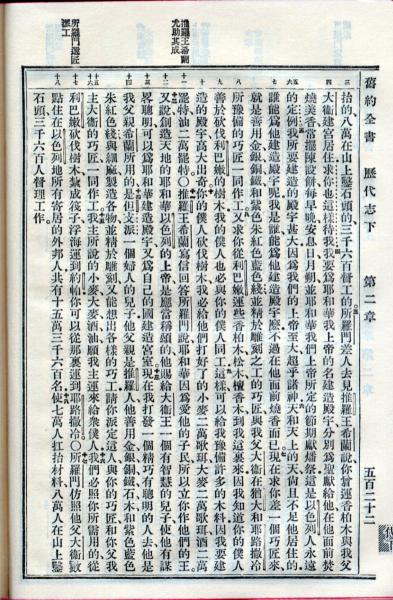 舊約全書　歷代志下　第二章　五百二十二
抬的、八萬在山上鑿石頭的、三千六百督工的、○所羅門差人去見推羅王希蘭說、你曾運香柏木與我父
大衛建宮居住、求你也這樣待我、我要爲耶和華我上帝的名建造殿宇、分別爲聖獻給他、在他面前焚
燒美香、常擺陳設餅、每早晚安息日月朔、並耶和華我們上帝所定的節期獻燔祭、這是以色列人永遠
的定例、我所要建造的殿宇甚大、因爲我們的上帝至大、超乎諸神、天和天上的天、尙且不足他居住的、
誰能爲他建造殿宇呢、我是誰、能爲他建造殿宇麽、不過在他面前燒香而已、現在求你差一個巧匠來、
就是善用金銀銅鐵和紫色朱紅色藍色綫、並精於雕刻之工的巧匠、與我父大衛在猶大和耶路撒冷
所豫備的巧匠一同作工、又求你從利巴嫩運些香柏木松木檀香木到我這裏來、因我知道你的僕人
善於砍伐利巴嫩的樹木、我的僕人也必與你的僕人同工、這樣可以給我豫備許多的木料、因我要建
造的殿宇高大出奇、你的僕人砍伐樹木、我必給他們打好了的小麥二萬歌珥、大麥二萬歌珥、酒二萬
罷特、油二萬罷特、○推羅王希蘭寫信回答所羅門說、耶和華因爲愛他的子民、所以立你作他們的王、
又說、創造天地的耶和華以色列的上帝、是應當稱頌的、他賜給大衛王一個有智慧的兒子、使他有謀
畧聰明、可以爲耶和華建造殿宇、又爲自己的國建造宮室、現在我打發一個精巧有聰明的人去、他是
我父親希蘭所用的、是但支派一個婦人的兒子、他父親是推羅人、他善用金銀銅鐵石木和紫色藍色
朱紅色綫與細麻製造各物、並精於雕刻、又能想出各樣的巧工、請你派定這人、與你的巧匠和你父我
主大衛的巧匠一同作工、我主所說的小麥大麥酒油、願我主運來給衆僕人、我們必照你所需用的、從
利巴嫩砍伐樹木、紮成筏子、浮海運到約帕、你可以從那裏運到耶路撒冷、○所羅門仿照他父大衛數
點住在以色列地所有寄居的外邦人、共有十五萬三千六百名、使七萬人扛抬材料、八萬人在山上鑿
石頭、三千六百人督理工作、
推羅王希蘭
尤助其成
所羅門選匠
派工